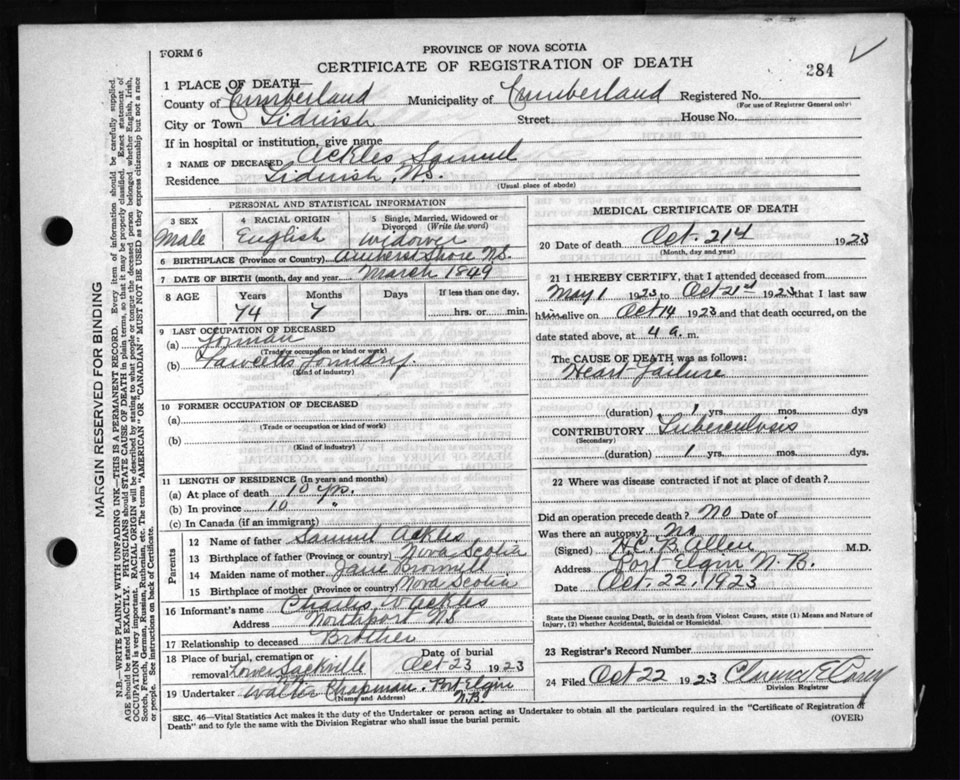 FORM 6
PROVINCE OF NOVA SCOTIA
CERTIFICATE OF REGISTRATION OF DEATH
284
1 PLACE OF DEATH—
County of Cumberland Municipality of Cumberland Registered No.
(For use of Registrar General only)
City or Town Tidnish Street House No.
If in hospital or institution, give name
2 NAME OF DECEASED Ackles Samuel
Residence Tidnish, NS.
(Usual place of abode)
PERSONAL AND STATISTICAL INFORMATION
3 SEX
Male
4 RACIAL ORIGIN
English
5 Single, Married, Widowed or
Divorced (Write the word)
Widower
6 BIRTHPLACE (Province or Country) Amherst Shore NS.
7 DATE OF BIRTH (month, day and year) March 1849
8 AGE Years Months Days If less than one day,
74 7 hrs. or min.
9 LAST OCCUPATION OF DECEASED
(a)
(Trade or occupation or kind of work)
(b) Fawcetts Foundry
(Kind of industry)
10 FORMER OCCUPATION OF DECEASED
(a)
(Trade or occupation or kind of work)
(b)
(Kind of industry)
11 LENGTH OF RESIDENCE (In years and months)
(a) At place of death 10 yrs.
(b) In province 10 "
(c) In Canada (if an immigrant)
Parents
12 Name of father Samuel Ackles
13 Birthplace of father (Province or country) Nova Scotia
14 Maiden name of mother Jane
15 Birthplace of mother (Province or country) Nova Scotia
16 Informant's name Ackles
Address Northport NS
17 Relationship to deceased Brother
18 Place of burial, cremation or
removal Lower Sackville
Date of burial
Oct 23 1923
19 Undertaker Walter Chapman. Port Elgin
N.B.
(Name and Address)
MEDICAL CERTIFICATE OF DEATH
20 Date of death Oct. 21st 1923
(Month, day and year)
21 I HEREBY CERTIFY, that I attended deceased from
May 1 1923 to Oct 21st 1923 that I last saw
him alive on Oct 14 1923 and that death occurred, on the
date stated above, at 4 a. m.
The CAUSE OF DEATH was as follows:
Heart Failure
(duration) 1 yrs. mos. dys
CONTRIBUTORY Tuberculosis
(Secondary)
(duration) 1 yrs. mos. dys
22 Where was disease contracted if not at place of death?
Did an operation precede death? No Date of
Was there an autopsy? No
(Signed) Allen M.D.
Address Port Elgin N.B.
Date Oct. 22, 1923
State the Disease causing Death, or in death from Violent Causes, state (1) Means and Nature of
Injury, (2) whether Accidental, Suicidal or Homicidal.
23 Registrar's Record Number
24 Filed Oct 22 1923 Clarence E Carey
Division Registrar
SEC. 46—Vital Statistics Act makes it the duty of the Undertaker or person acting as Undertaker to obtain all the particulars required in the "Certificate of Registration of
Death" and to fyle the same with the Division Registrar who shall issue the burial permit.
(OVER)
MARGIN RESERVED FOR BINDING
N.B.—WRITE PLAINLY WITH UNFADING INK—THIS IS A PERMANENT RECORD. Every item of information should be carefully supplied.
AGE should be stated EXACTLY. PHYSICIANS should STATE CAUSE OF DEATH in plain terms, so that it may be properly classified. Exact statement of
OCCUPATION is very important. RACIAL ORIGIN will be described by stating to what people or tongue the deceased person belonged, whether English, Irish,
Scotch, French, German, Russian, Ruthenian, etc. The terms "AMERICAN" OR "CANADIAN" MUST NOT BE USED as they express citizenship but not a race
or people. See instructions on back of Certificate.